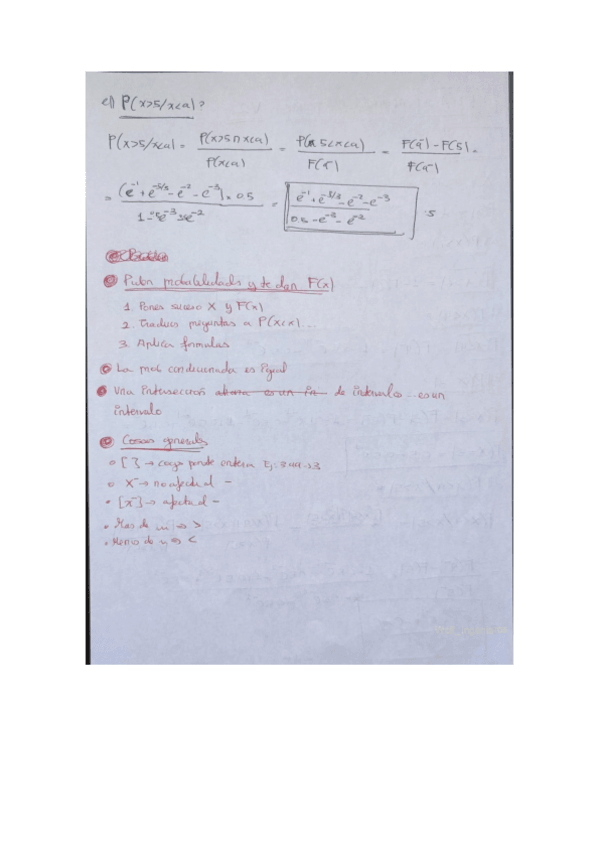 P(x>5/x<a)?
P(x>5/x<a) = P(x>5∩x<a) / P(x<a) = P(5<x<a) / F(a⁻) = F(a⁻) - F(5) / F(a⁻) =
= (e⁻¹ + e^-5/3 - e⁻² - e⁻³) · 0.5 = e⁻¹ + e^-5/3 - e⁻² - e⁻³
Piden probabilidades y te dan F(x)
1. Pones suceso X y F(x)
2. Traduces preguntas a P(x<x)...
3. Aplicar formulas
La prob condicionada es igual
Una interseccion de intervalos... es un
intervalo
Cosas generales
[ ] → coge parte entera Ej: 3.49→3
x⁻ → no afecta al -
[x⁻] → afecta al -
Mas de n => >
Menos de n => <